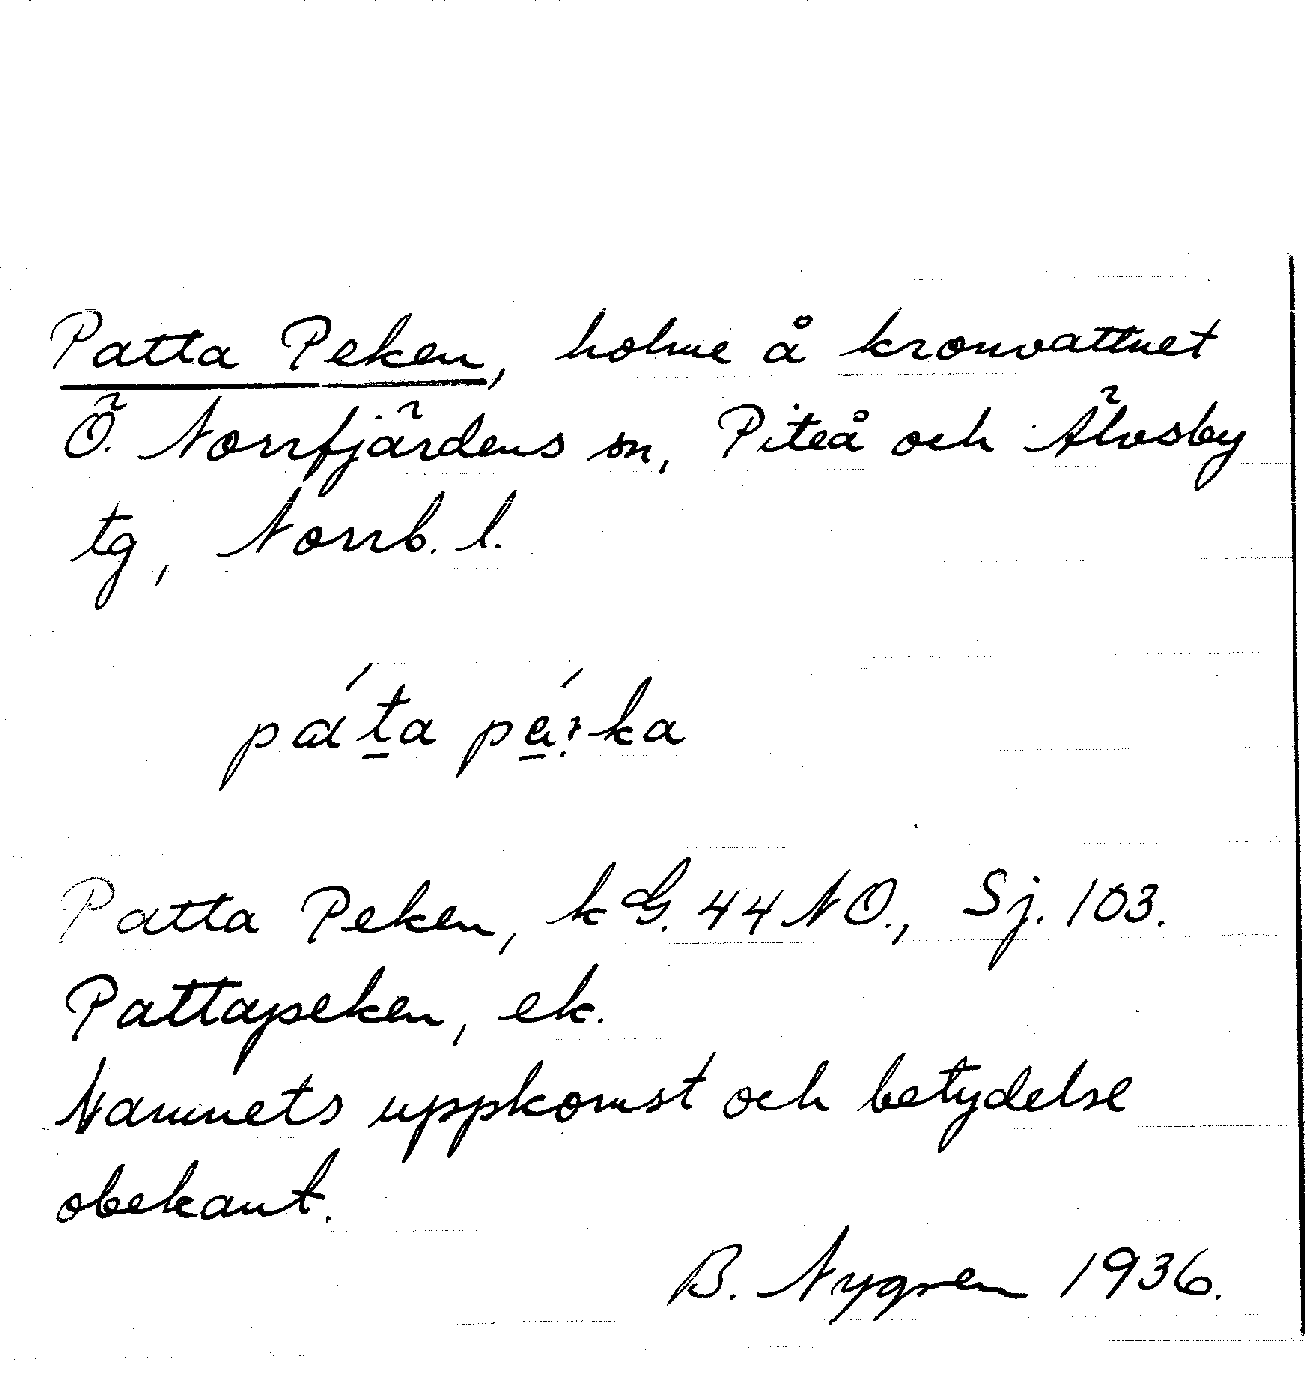 Patta Peken, holme å kronvattnet
Ö. Norrfjärdens sn, Piteå och Älvsby
tg, Norrb. l.
Patta Peken, k G. 44 NO., Sj. 103.
Pattapeken, ek.
Namnets uppkomst och betydelse
obekant.
B. Nygren 1936.